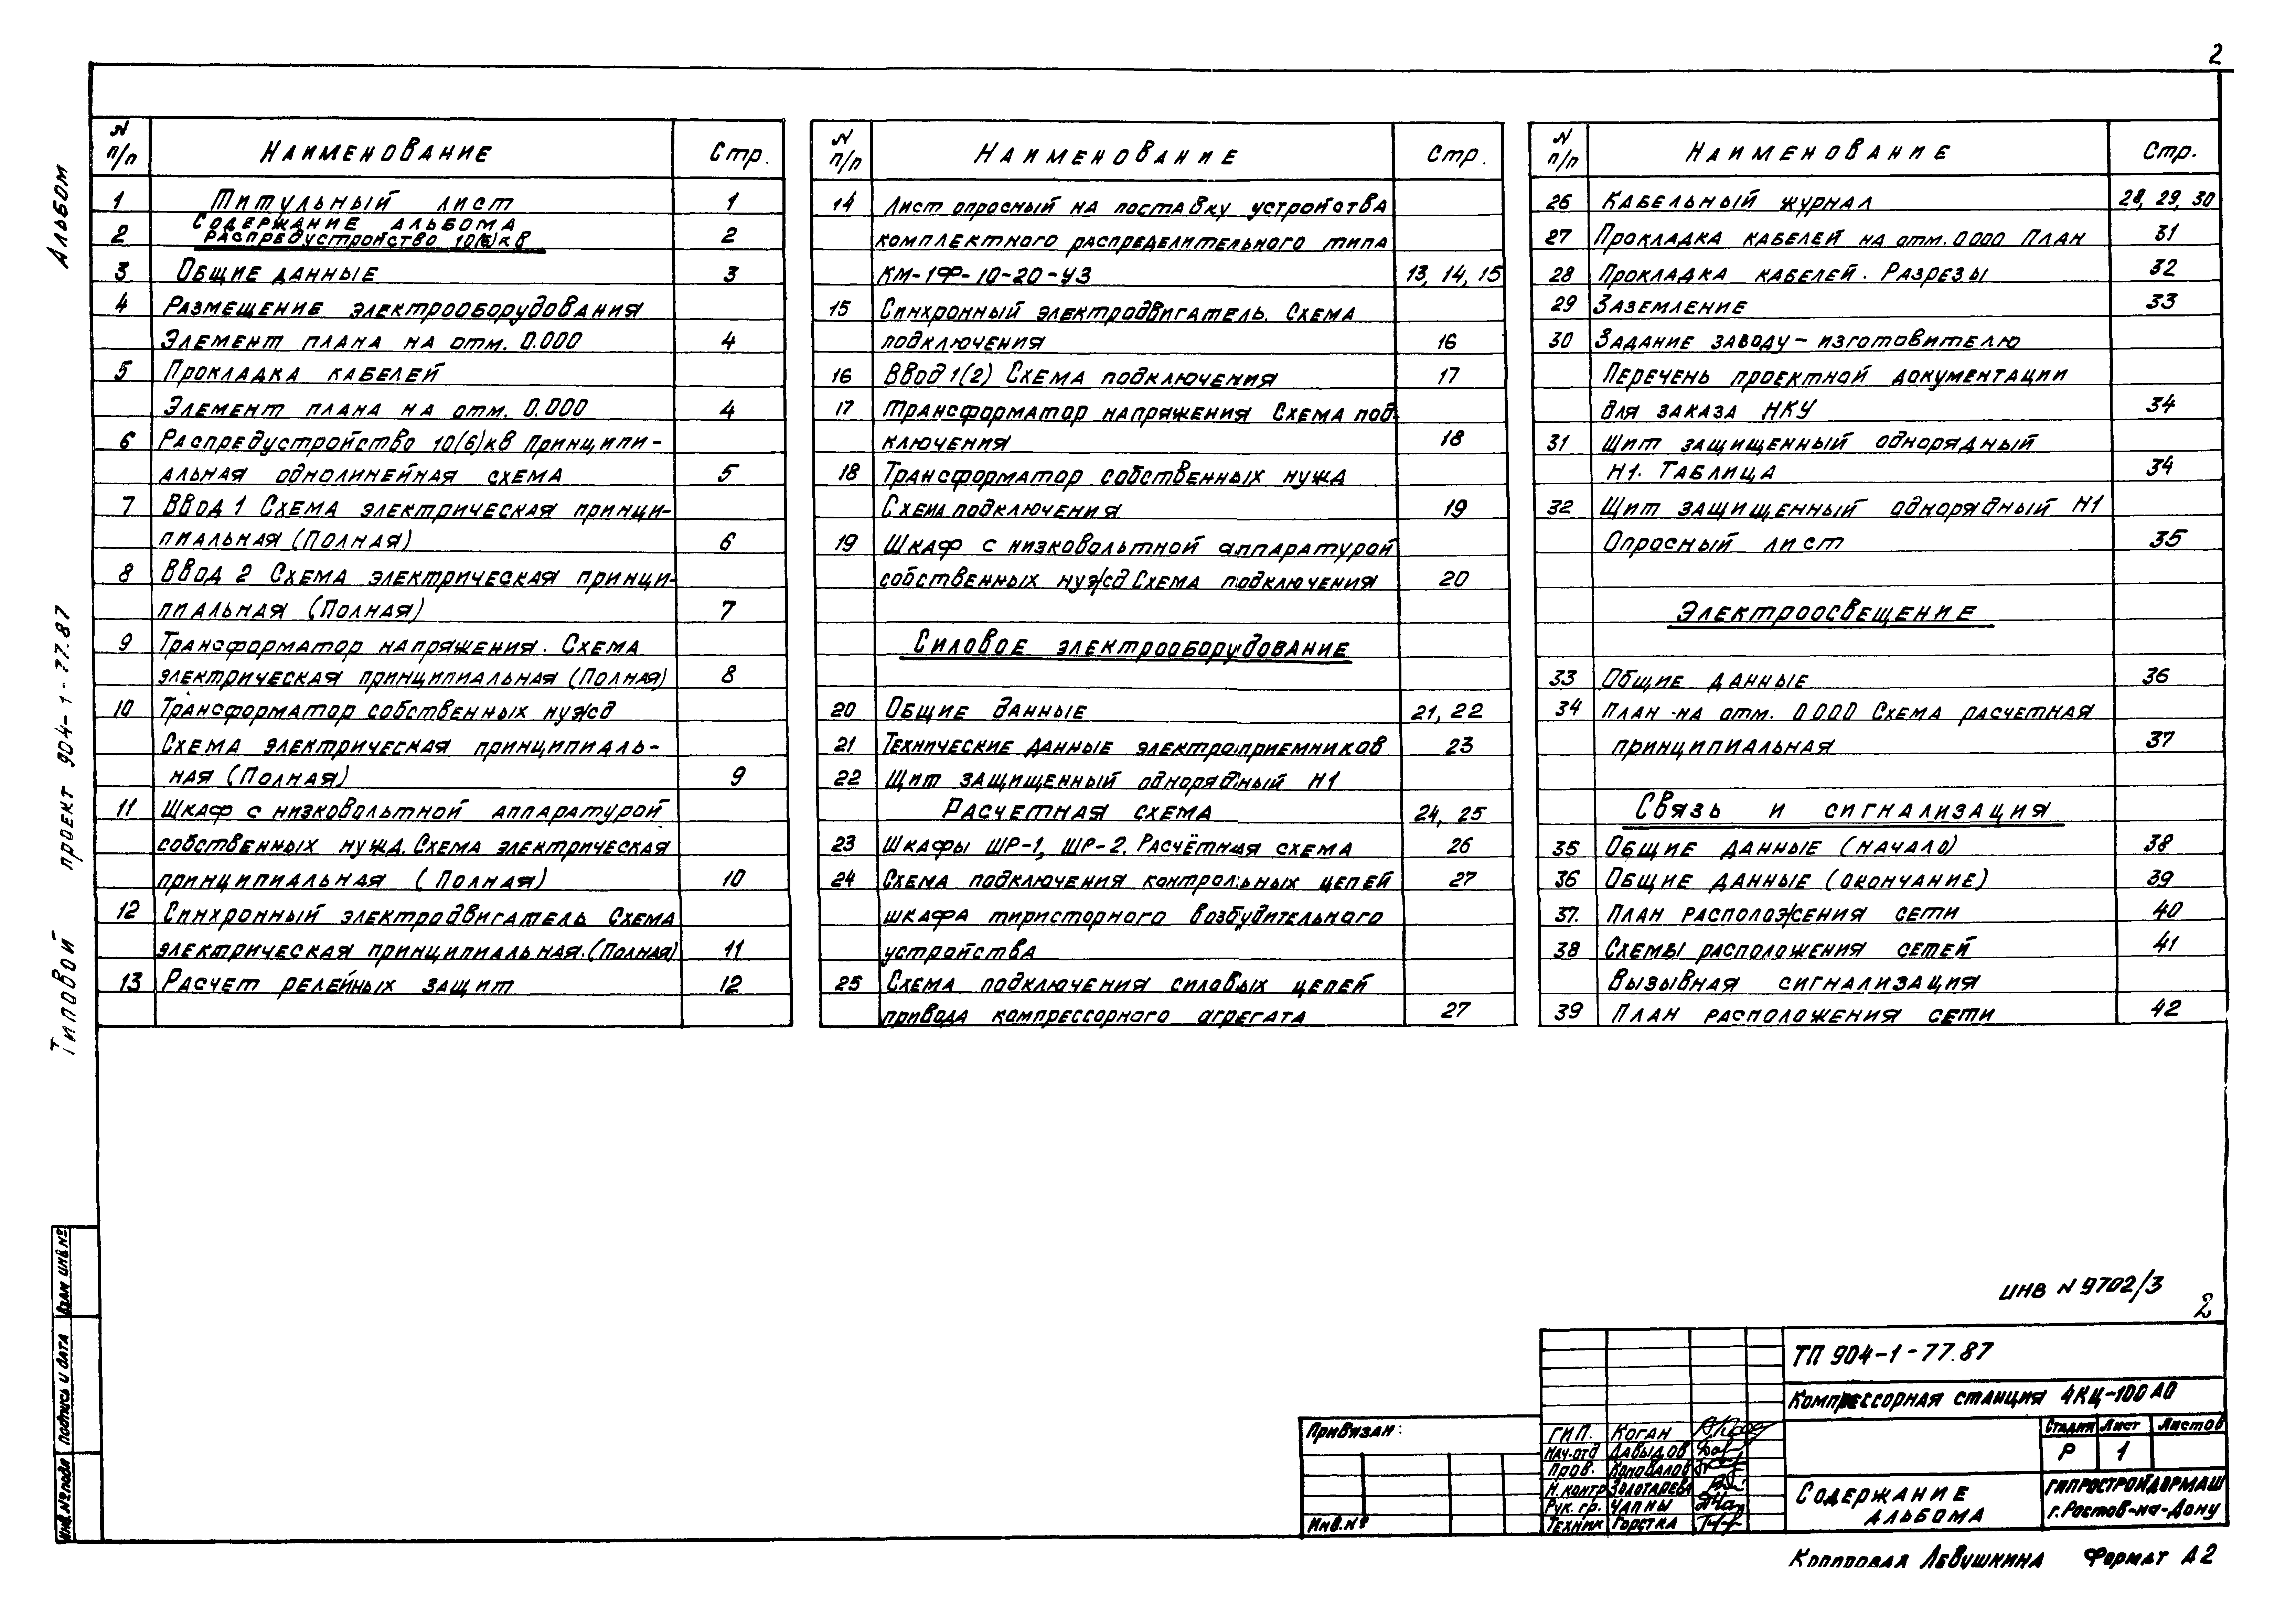 2
Альбом
Типовой проект 904-1-77.87
N п/п Наименование Стр.
1 Титульный лист 1
Содержание альбома
2 Распредустройство 10(6)кв 2
3 Общие данные 3
4 Размещение электрооборудования
Элемент плана на отм. 0.000 4
5 Прокладка кабелей
Элемент плана на отм. 0.000 4
6 Распредустройство 10(6)кв Принципи-
альная однолинейная схема 5
7 Ввод 1 Схема электрическая принци-
пиальная (Полная) 6
8 Ввод 2 Схема электрическая принци-
пиальная (Полная) 7
9 Трансформатор напряжения. Схема
электрическая принципиальная (Полная) 8
10 Трансформатор собственных нужд
Схема электрическая принципиаль-
ная (Полная) 9
11 Шкаф с низковольтной аппаратурой
собственных нужд. Схема электрическая
принципиальная (Полная) 10
12 Синхронный электродвигатель Схема
электрическая принципиальная. (Полная) 11
13 Расчет релейных защит 12
N п/п Наименование Стр.
14 Лист опросный на поставку устройства
комплектного распределительного типа
КМ-1Ф-10-20-У3 13, 14, 15
15 Синхронный электродвигатель. Схема
подключения 16
16 Ввод 1(2) Схема подключения 17
17 Трансформатор напряжения Схема под-
ключения 18
18 Трансформатор собственных нужд
Схема подключения 19
19 Шкаф с низковольтной аппаратурой
собственных нужд Схема подключения 20
Силовое электрооборудование
20 Общие данные 21, 22
21 Технические данные электроприемников 23
22 Щит защищенный однорядный Н1
Расчетная схема 24, 25
23 Шкафы ШР-1, ШР-2. Расчётная схема 26
24 Схема подключения контрольных цепей 27
шкафа тиристорного возбудительного
устройства
25 Схема подключения силовых цепей
привода компрессорного агрегата 27
N п/п Наименование Стр.
26 Кабельный журнал 28, 29, 30
27 Прокладка кабелей на отм. 0.000 План 31
28 Прокладка кабелей. Разрезы 32
29 Заземление 33
30 Задание заводу-изготовителю
Перечень проектной документации
для заказа НКУ 34
31 Щит защищенный однорядный
Н1. Таблица 34
32 Щит защищенный однорядный Н1
Опросный лист 35
Электроосвещение
33 Общие данные 36
34 План на отм. 0.000 Схема расчетная
принципиальная 37
Связь и сигнализация
35 Общие данные (начало) 38
36 Общие данные (окончание) 39
37. План расположения сети 40
38 Схемы расположения сетей 41
Вызывная сигнализация
39 План расположения сети 42
Взам инв №
Подпись и дата
Инв. № подл
инв N 9702/3
2
ТП 904-1-77.87
Компрессорная станция 4КЦ-100 А0
Стадия Лист Листов
Р 1
Содержание
альбома
ГИПРОСТРОЙДОРМАШ
г. Ростов-на-Дону
Привязан:
Инв. №
ГИП. Коган
Нач. отд Давыдов
Пров. Коновалов
Н. контр Золотарева
Рук. гр. Чапны
Техник Горстка
Копировал Левушкина Формат А2